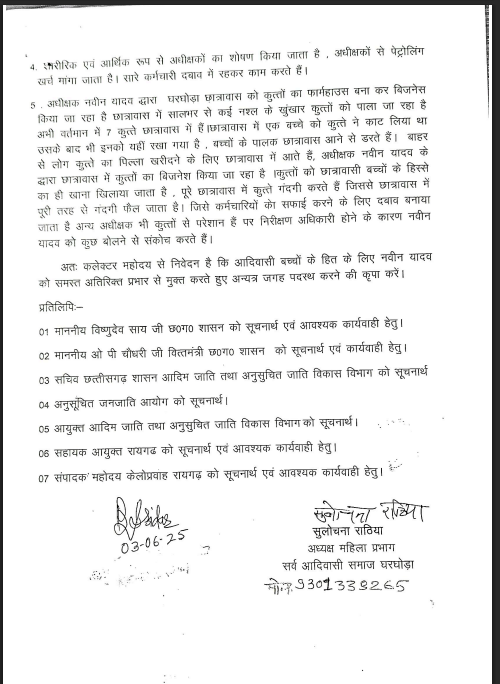 4. शारीरिक एवं आर्थिक रूप से अधीक्षकों का शोषण किया जाता है , अधीक्षकों से पेट्रोलिंग
खर्च मांगा जाता है। सारे कर्मचारी दबाव में रहकर काम करते हैं।
5 . अधीक्षक नवीन यादव द्वारा घरघोड़ा छात्रावास को कुत्तों का फार्महाउस बना कर बिजनेस
किया जा रहा है छात्रावास में सालभर से कई नश्ल के खुंखार कुत्तों को पाला जा रहा है
अभी वर्तमान में 7 कुत्ते छात्रावास में हैं।छात्रावास में एक बच्चे को कुत्ते ने काट लिया था
उसके बाद भी इनको यहीं रखा गया है , बच्चों के पालक छात्रावास आने से डरते हैं। बाहर
से लोग कुत्ते का पिल्ला खरीदने के लिए छात्रावास में आते हैं, अधीक्षक नवीन यादव के
द्वारा छात्रावास में कुत्तों का बिजनेश किया जा रहा है ।कुत्तों को छात्रावासी बच्चों के हिस्से
का ही खाना खिलाया जाता है , पूरे छात्रावास में कुत्ते गंदगी करते हैं जिससे छात्रावास में
पूरी तरह से गंदगी फैल जाता है। जिसे कर्मचारियों को सफाई करने के लिए दबाव बनाया
जाता है अन्य अधीक्षक भी कुत्तों से परेशान हैं पर निरीक्षण अधिकारी होने के कारण नवीन
यादव को कुछ बोलने से संकोच करते हैं।
अतः कलेक्टर महोदय से निवेदन है कि आदिवासी बच्चों के हित के लिए नवीन यादव
को समस्त अतिरिक्त प्रभार से मुक्त करते हुए अन्यत्र जगह पदस्थ करने की कृपा करें।
प्रतिलिपिः–
01 माननीय विष्णुदेव साय जी छ0ग0 शासन को सूचनार्थ एवं आवश्यक कार्यवाही हेतु।
02 माननीय ओ पी चौधरी जी वित्तमंत्री छ0ग0 शासन को सूचनार्थ एवं कार्यवाही हेतु।
03 सचिव छत्तीसगढ़ शासन आदिम जाति तथा अनुसुचित जाति विकास विभाग को सूचनार्थ
04 अनुसूचित जनजाति आयोग को सूचनार्थ।
05 आयुक्त आदिम जाति तथा अनुसुचित जाति विकास विभाग को सूचनार्थ।
06 सहायक आयुक्त रायगढ को सूचनार्थ एवं आवश्यक कार्यवाही हेतु।
07 संपादक महोदय केलोप्रवाह रायगढ़ को सूचनार्थ एवं आवश्यक कार्यवाही हेतु।
03-06-25
सुलोचना राठिया
सुलोचना राठिया
अध्यक्ष महिला प्रभाग
सर्व आदिवासी समाज घरघोड़ा
मो.न. 9301339265